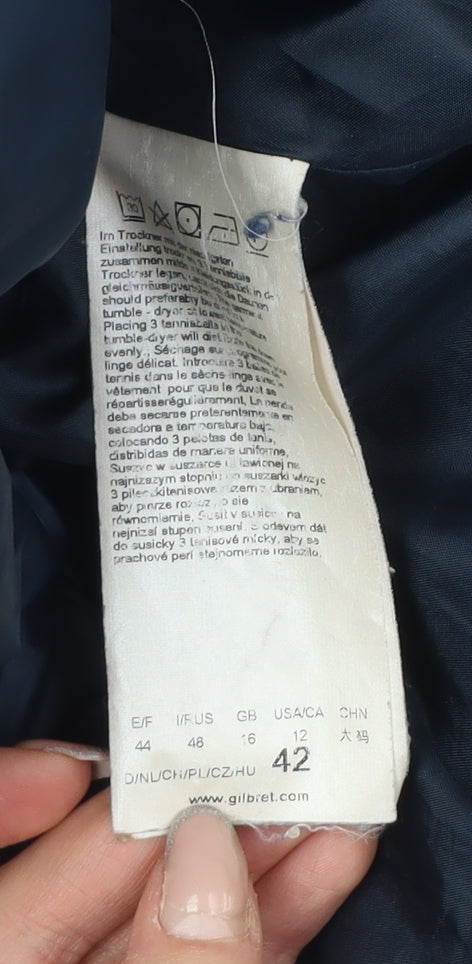 30
Im Trockner mit der
Einstellung
zusammen mit
Trockner legen
gleichmäusig die Daunen
should preferably be
tumble - dryer at
Placing 3 tennisballs in the
tumble-dryer will distribute the down
evenly., Séchage sur programme
linge délicat. Introduire 3 balles de
tennis dans le sèche-linge avec le
vêtement pour que le duvet se
répartisserégulièrement, La prenda
debe secarse preferentemente en
secadora a temperatura baja,
colocando 3 pelotas de tenis,
distribidas de manera uniforme,
Suszyc w suszarce na
najnizszym stopniu suszarki wlozyc
3 pileczkitenisowe razem z ubraniem,
aby pierze sie
równomiernie, Susit v susicce na
nejnizsi stupen suseni. S odevem dát
do susicky 3 tenisové mícky, aby se
prachové peri stejnomerne rozlozilo,
E/F I/RUS GB USA/CA CHN
44 48 16 12 大码
D/NL/CH/PL/CZ/HU 42
www.gilbret.com